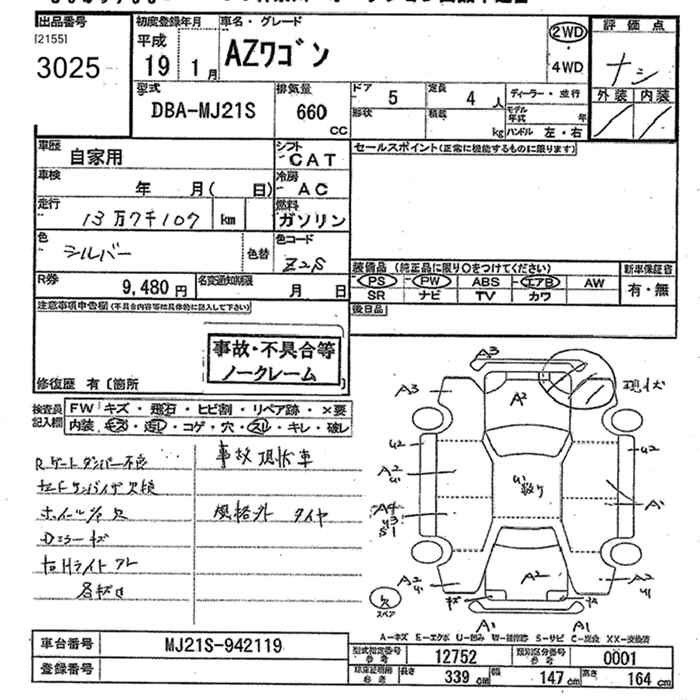 出品番号
[2155]
3025
初度登録年月
平成
19 1月
車名・グレード
AZワゴン
2WD
・
4WD
評価点
ナシ
外装 内装
型式
DBA-MJ21S
排気量
660
CC
ドア 5
定員 4人
形状
積載 kg
ディーラー・並行
モデル年式 年
ハンドル 左・右
車歴
自家用
シフト
CAT
セールスポイント(正常に機能するものに限ります)
車検
年 月( 日)
冷房
AC
走行
13万7千107 km
燃料
ガソリン
色
シルバー
色替
色コード
Z2S
装備品 (純正品に限り○をつけてください)
新車保証書
PS PW ABS エアB AW
SR ナビ TV カワ
有・無
R券
9,480円
名変通知期限
月 日
後日品
注意事項申告欄(不具合内容等は具体的に記入して下さい)
事故・不具合等
ノークレーム
修復歴 有〔箇所
検査員
記入欄
FW キズ・飛石・ヒビ割・リペア跡・×要
内装 キズ・汚レ・コゲ・穴・スレ・キレ・破レ
事故現状車
ホイール
風格外 タイヤ
Dミラーキズ
A3
A3
A2
現状
U2
U2
A2
U1
A1
A4
U3
S1
A2
U1
A2
A2
U1
キズ
A1
A1
スペア
A-キズ E-エクボ U-凹み W-補修跡 S-サビ C-腐食 XX-交換済
車台番号
MJ21S-942119
登録番号
型式指定番号
参考
12752
類別区分番号
参考
0001
車庫証明用
参考
長さ 339cm
幅 147cm
高さ 164cm